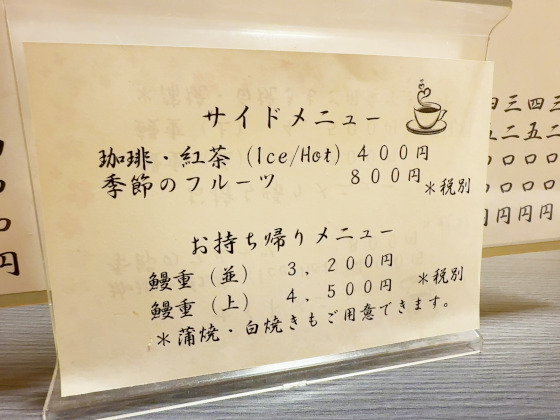 サイドメニュー
珈琲・紅茶（Ice/Hot）４００円
季節のフルーツ　８００円
＊税別
お持ち帰りメニュー
鰻重（並）　３，２００円
鰻重（上）　４，５００円
＊税別
＊蒲焼・白焼きもご用意できます。
円
四三四三
五二五二
〇〇〇〇
〇〇〇〇
円円円円